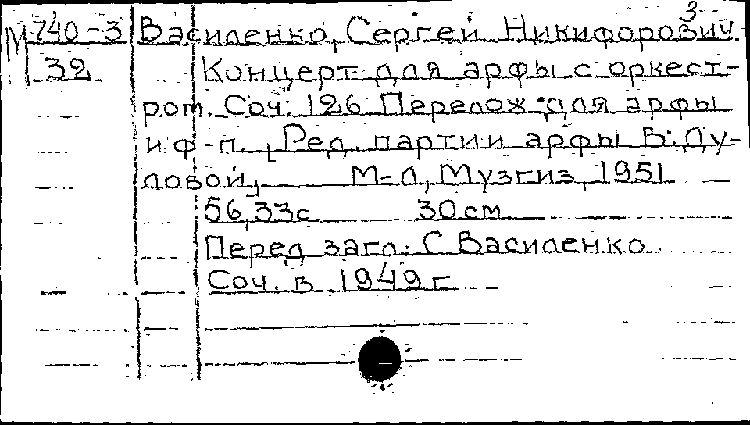 3
М 740-3 Василенко, Сергей Никифорович
32 Концерт для арфы с оркест-
ром. Соч. 126 Перелож. для арфы
и ф-п. [Ред. партии арфы В. Ду-
ловой,] М-Л, Музгиз, 1951
56, 33с 30 см
Перед загл: С Василенко
Соч. в 1949 г